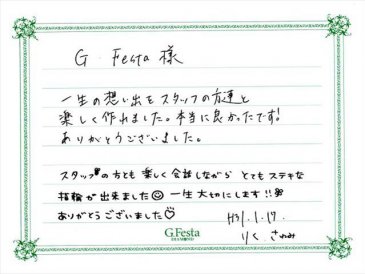 G. Festa 様
一生の想い出をスタッフの方達と
楽しく作れました。本当に良かったです!
ありがとうございました。
スタッフの方とも楽しく会話しながら とてもステキな
指輪が出来ました☺ 一生大切にします!!
ありがとうございました♡
H31.1.17.
りく さわみ
G.Festa